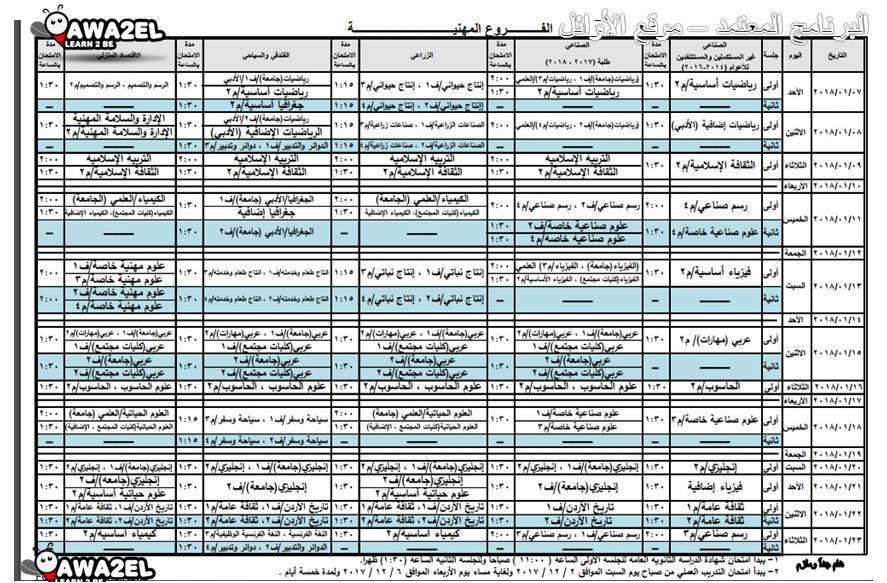 البرنامج المعتمد – موقع الأوائل
AWA2EL
LEARN 2 BE
الفـــروع المهنيـــة
التاريخ اليوم جلسة الصناعي غير المستكملين والمستنفدين للأعوام (٢٠١٤-٢٠١٦) مدة الامتحان بالساعة الصناعي طلبة (٢٠١٧ ، ٢٠١٨) الزراعي مدة الامتحان بالساعة الفندقي والسياحي مدة الامتحان بالساعة الاقتصاد المنزلي مدة الامتحان بالساعة
٢٠١٨/٠١/٠٧ الأحد أولى رياضيات أساسية/م٢ ١:٣٠ (رياضيات(جامعة)/ف١ ، رياضيات/م٣)/العلمي ٢:٠٠ إنتاج حيواني/ف١ ، إنتاج حيواني/م٣ ١:١٥ رياضيات(جامعة)/ف١/الأدبي ١:٣٠ الرسم والتصميم ، الرسم والتصميم/م٢ ١:٣٠
رياضيات أساسية/م٢ ١:٣٠ رياضيات أساسية/م٢
ثانية إنتاج حيواني/ف٢ ، إنتاج حيواني/م٤ ١:١٥ جغرافيا أساسية/م٢ ١:٣٠
٢٠١٨/٠١/٠٨ الاثنين أولى رياضيات إضافية (الأدبي) ١:٣٠ (رياضيات(جامعة)/ف٢ ، رياضيات/م٤)/العلمي ٢:٠٠ الصناعات الزراعية/ف١ ، صناعات زراعية/م٣ ١:١٥ رياضيات(جامعة)/ف٢/الأدبي ١:٣٠ الإدارة والسلامة المهنية ١:٣٠
الرياضيات الإضافية (الأدبي) الإدارة والسلامة المهنية/م٢
ثانية الصناعات الزراعية/ف٢ ، صناعات زراعية/م٤ ١:١٥ الدوائر والتدبير/ف١ ، دوائر وتدبير/م٣ ١:٣٠
٢٠١٨/٠١/٠٩ الثلاثاء أولى الثقافة الإسلامية/م٢ ١:٣٠ التربية الإسلامية ٢:٠٠ التربية الإسلامية ٢:٠٠ التربية الإسلامية ٢:٠٠ التربية الإسلامية ٢:٠٠
الثقافة الإسلامية/م٢ ١:٣٠ الثقافة الإسلامية/م٢ ١:٣٠ الثقافة الإسلامية/م٢ ١:٣٠ الثقافة الإسلامية/م٢ ١:٣٠
٢٠١٨/٠١/١٠ الأربعاء
٢٠١٨/٠١/١١ الخميس أولى رسم صناعي/م٤ ٢:٠٠ رسم صناعي/ف٢ ، رسم صناعي/م٤ ٢:٠٠ الكيمياء/العلمي (الجامعة) ٢:٠٠ الجغرافيا/الأدبي (جامعة)/ف١ ١:٣٠ الكيمياء/العلمي (الجامعة) ٢:٠٠
الكيمياء(كليات المجتمع)، الكيمياء الإضافية ١:٣٠ جغرافيا إضافية الكيمياء(كليات المجتمع)، الكيمياء الإضافية ١:٣٠
ثانية علوم صناعية خاصة/م٤ ١:٣٠ علوم صناعية خاصة/ف٢ ١:٣٠ الجغرافيا/الأدبي (جامعة)/ف٢ ١:٣٠
علوم صناعية خاصة/م٤ ١:٣٠
٢٠١٨/٠١/١٢ الجمعة
٢٠١٨/٠١/١٣ السبت أولى فيزياء أساسية/م٢ ١:٣٠ (الفيزياء(جامعة) ، الفيزياء/م٣) العلمي ٢:٠٠ إنتاج نباتي/ف١ ، إنتاج نباتي/م٣ ١:١٥ انتاج طعام وخدمته/ف١ ، انتاج طعام وخدمته/م٣ ١:٣٠ علوم مهنية خاصة/ف١ ٢:٠٠
الفيزياء(كليات مجتمع) ، الفيزياء الأساسية/م٢ ١:٣٠ علوم مهنية خاصة/م٣
ثانية إنتاج نباتي/ف٢ ، إنتاج نباتي/م٤ ١:١٥ انتاج طعام وخدمته/ف٢ ، انتاج طعام وخدمته/م٤ ١:٣٠ علوم مهنية خاصة/ف٢ ٢:٠٠
علوم مهنية خاصة/م٤
٢٠١٨/٠١/١٤ الأحد
٢٠١٨/٠١/١٥ الاثنين أولى عربي (مهارات)/ م٢ ١:٣٠ عربي(جامعة)/ف١ ، عربي(مهارات)/م٢ ١:٣٠ عربي(جامعة)/ف١ ، عربي(مهارات)/م٢ ١:٣٠ عربي(جامعة)/ف١ ، عربي(مهارات)/م٢ ١:٣٠ عربي(جامعة)/ف١ ، عربي(مهارات)/م٢ ١:٣٠
عربي(كليات مجتمع)/ف١ عربي(كليات مجتمع)/ف١ عربي(كليات مجتمع)/ف١ عربي(كليات مجتمع)/ف١
ثانية عربي(جامعة)/ف٢ ١:٣٠ عربي(جامعة)/ف٢ ١:٣٠ عربي(جامعة)/ف٢ ١:٣٠ عربي(جامعة)/ف٢ ١:٣٠
عربي(كليات مجتمع)/ف٢ عربي(كليات مجتمع)/ف٢ عربي(كليات مجتمع)/ف٢ عربي(كليات مجتمع)/ف٢
٢٠١٨/٠١/١٦ الثلاثاء أولى الحاسوب/م٢ ١:٣٠ علوم الحاسوب ، الحاسوب/م٢ ١:٣٠ علوم الحاسوب ، الحاسوب/م٢ ١:٣٠ علوم الحاسوب ، الحاسوب/م٢ ١:٣٠ علوم الحاسوب ، الحاسوب/م٢ ١:٣٠
٢٠١٨/٠١/١٧ الأربعاء
٢٠١٨/٠١/١٨ الخميس أولى علوم صناعية خاصة/م٣ ١:٣٠ علوم صناعية خاصة/ف١ ١:٣٠ العلوم الحياتية/العلمي (جامعة) ٢:٠٠ سياحة وسفر/ف١ ، سياحة وسفر/م٣ ١:١٥ العلوم الحياتية/العلمي (جامعة) ٢:٠٠
علوم صناعية خاصة/م٣ العلوم الحياتية(كليات المجتمع ، الإضافية) ١:٣٠ العلوم الحياتية(كليات المجتمع ، الإضافية) ١:٣٠
ثانية سياحة وسفر/ف٢ ، سياحة وسفر/م٤ ١:١٥
٢٠١٨/٠١/١٩ الجمعة
٢٠١٨/٠١/٢٠ السبت أولى إنجليزي/م٢ ١:٣٠ إنجليزي(جامعة)/ف١ ، إنجليزي/م٢ ١:٣٠ إنجليزي(جامعة)/ف١ ، إنجليزي/م٢ ١:٣٠ إنجليزي(جامعة)/ف١ ، إنجليزي/م٢ ١:٣٠ إنجليزي(جامعة)/ف١ ، إنجليزي/م٢ ١:٣٠
٢٠١٨/٠١/٢١ الأحد أولى فيزياء إضافية ١:٣٠ إنجليزي(جامعة)/ف٢ ١:٣٠ إنجليزي(جامعة)/ف٢ ١:٣٠ إنجليزي(جامعة)/ف٢ ١:٣٠ إنجليزي(جامعة)/ف٢ ١:٣٠
علوم حياتية أساسية/م٢ علوم حياتية أساسية/م٢
٢٠١٨/٠١/٢٢ الاثنين أولى ثقافة عامة/م١ ١:٣٠ تاريخ الأردن/ف١ ١:٣٠ تاريخ الأردن/ف١، ثقافة عامة/م١ ١:٣٠ تاريخ الأردن/ف١، ثقافة عامة/م١ ١:٣٠ تاريخ الأردن/ف١، ثقافة عامة/م١ ١:٣٠
ثانية ثقافة عامة/م٢ ١:٣٠ تاريخ الأردن/ف٢ ١:٣٠ تاريخ الأردن/ف٢، ثقافة عامة/م٢ ١:٣٠ تاريخ الأردن/ف٢، ثقافة عامة/م٢ ١:٣٠ تاريخ الأردن/ف٢، ثقافة عامة/م٢ ١:٣٠
٢٠١٨/٠١/٢٣ الثلاثاء أولى رسم صناعي/م٣ ٢:٠٠ رسم صناعي/ف١ ، رسم صناعي/م٣ ٢:٠٠ كيمياء أساسية/م٢ ١:٣٠ اللغة الفرنسية ، اللغة الفرنسية الوظيفية/م٣ ١:٣٠ كيمياء أساسية/م٢ ١:٣٠
ثانية الدوائر والتدبير/ف٢ ، دوائر وتدبير/م٤ ١:٣٠
١- يبدأ امتحان شهادة الدراسة الثانوية العامة للجلسة الأولى الساعة (١١:٠٠) صباحاً وللجلسة الثانية الساعة (١:٣٠) ظهراً.
٢- يبدأ امتحان التدريب العملي من صباح يوم السبت الموافق ٢ / ١٢ / ٢٠١٧ ولغاية مساء يوم الأربعاء الموافق ٦ / ١٢ / ٢٠١٧ ولمدة خمسة أيام .
AWA2EL
LEARN 2 BE